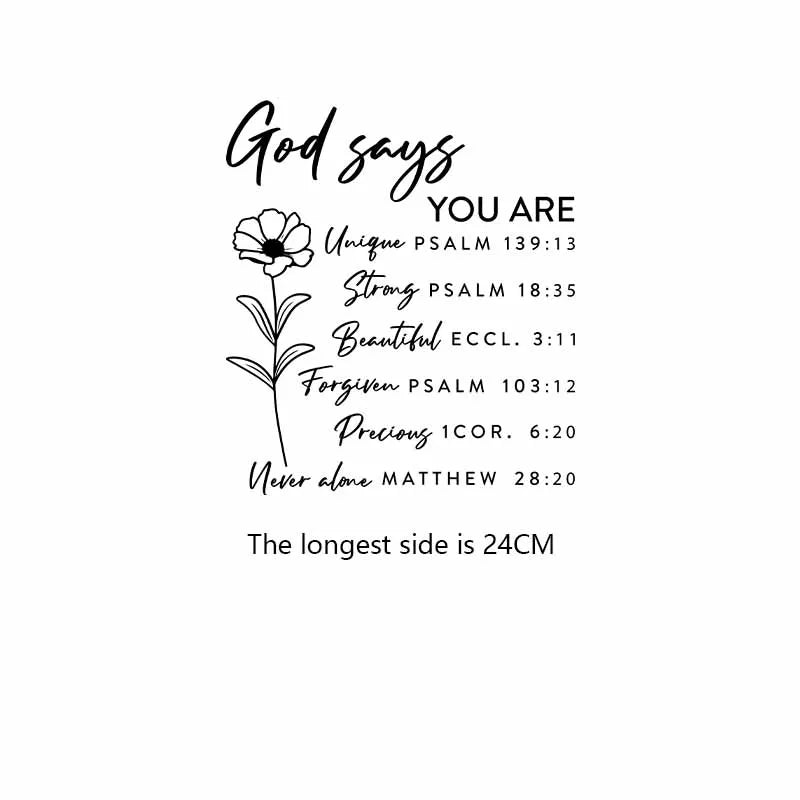 God says
YOU ARE
Unique PSALM 139:13
Strong PSALM 18:35
Beautiful ECCL. 3:11
Forgiven PSALM 103:12
Precious 1COR. 6:20
Never alone MATTHEW 28:20
The longest side is 24CM